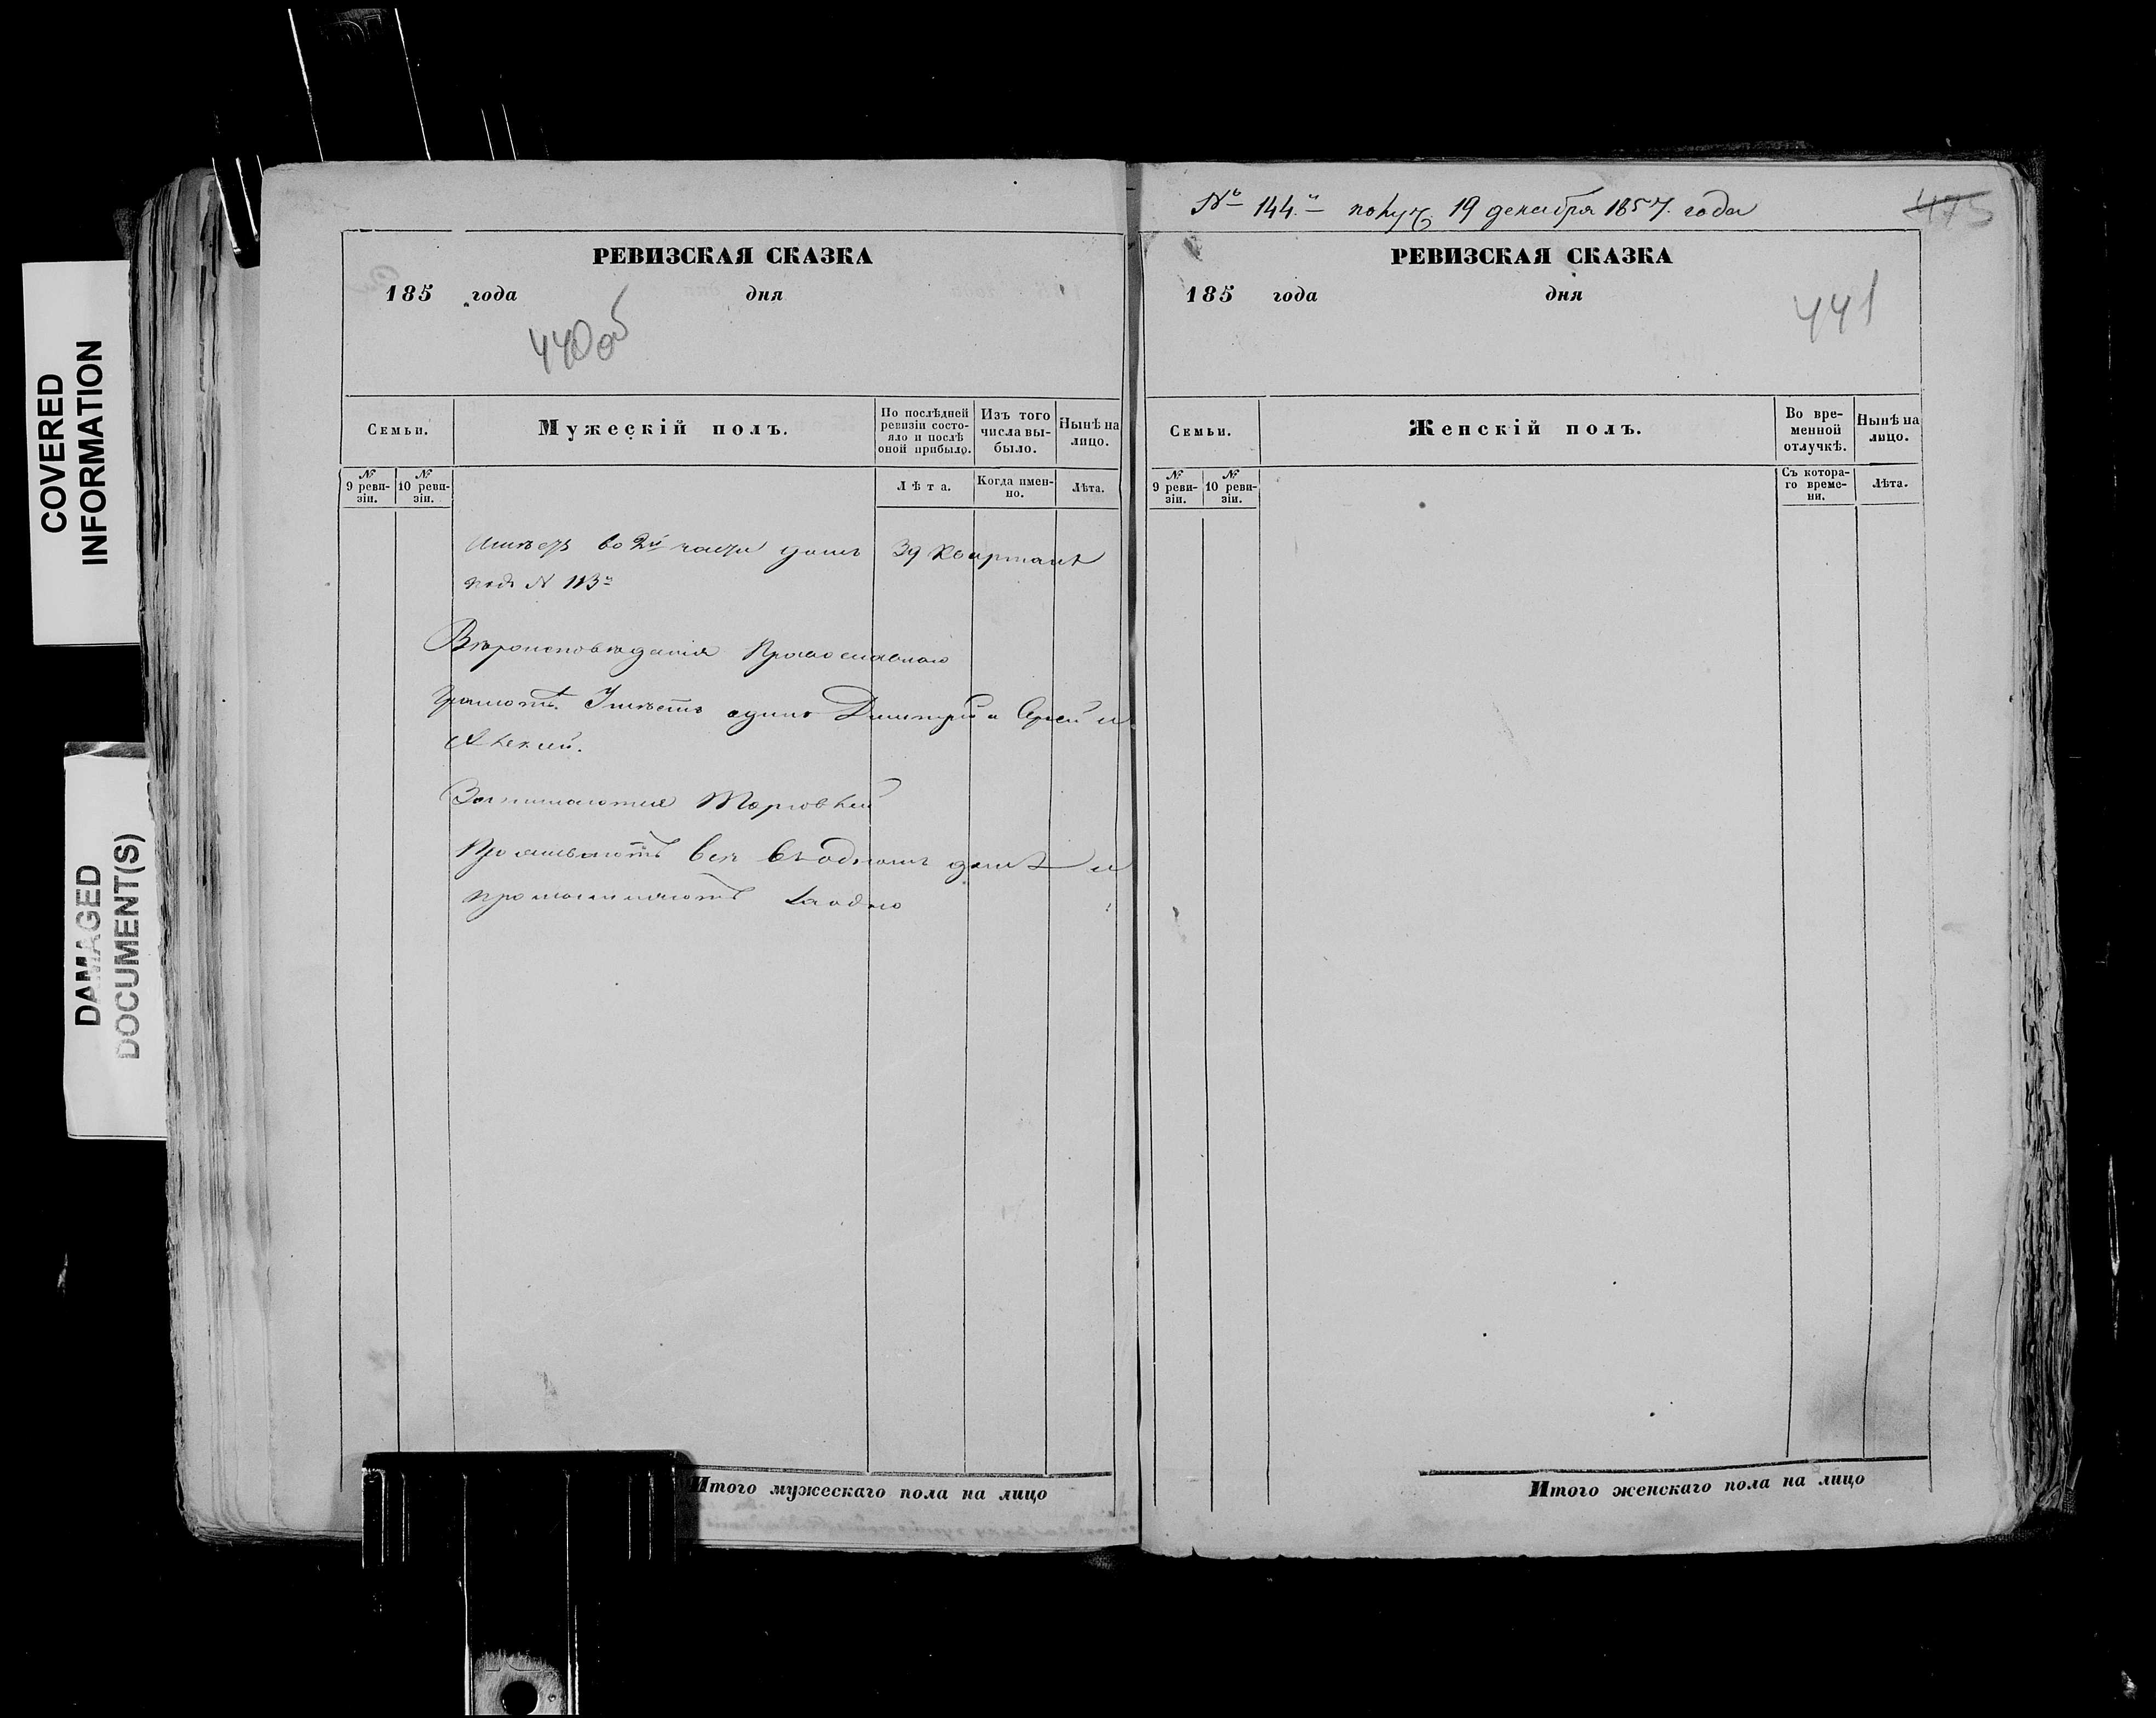 COVERED
INFORMATION
DAMAGED
DOCUMENT(S)
РЕВИЗСКАЯ СКАЗКА
185 года дня
440 об
Семьи.
Мужескій полъ.
По послѣдней ревизіи состояло и послѣ оной прибыло.
Изъ того числа выбыло.
Нынѣ на лицо.
№ 9 ревизіи.
№ 10 ревизіи.
Лѣта.
Когда именно.
Лѣта.
Имѣетъ во 2й части домъ 39 квартала
подъ № 113й
Вѣроисповѣданія Православнаго
Грамотѣ Умѣетъ одинъ Дмитрій и Сергѣй и
Алексей.
Занимаются Торговлей
Проживаютъ всѣ въ одномъ домѣ и
промышляютъ заодно
Итого мужескаго пола на лицо
№ 144.й получ. 19 декабря 1857. года
475
РЕВИЗСКАЯ СКАЗКА
185 года дня
441
Семьи.
Женскій полъ.
Во временной отлучкѣ.
Нынѣ на лицо.
№ 9 ревизіи.
№ 10 ревизіи.
Съ котораго времени.
Лѣта.
Итого женскаго пола на лицо